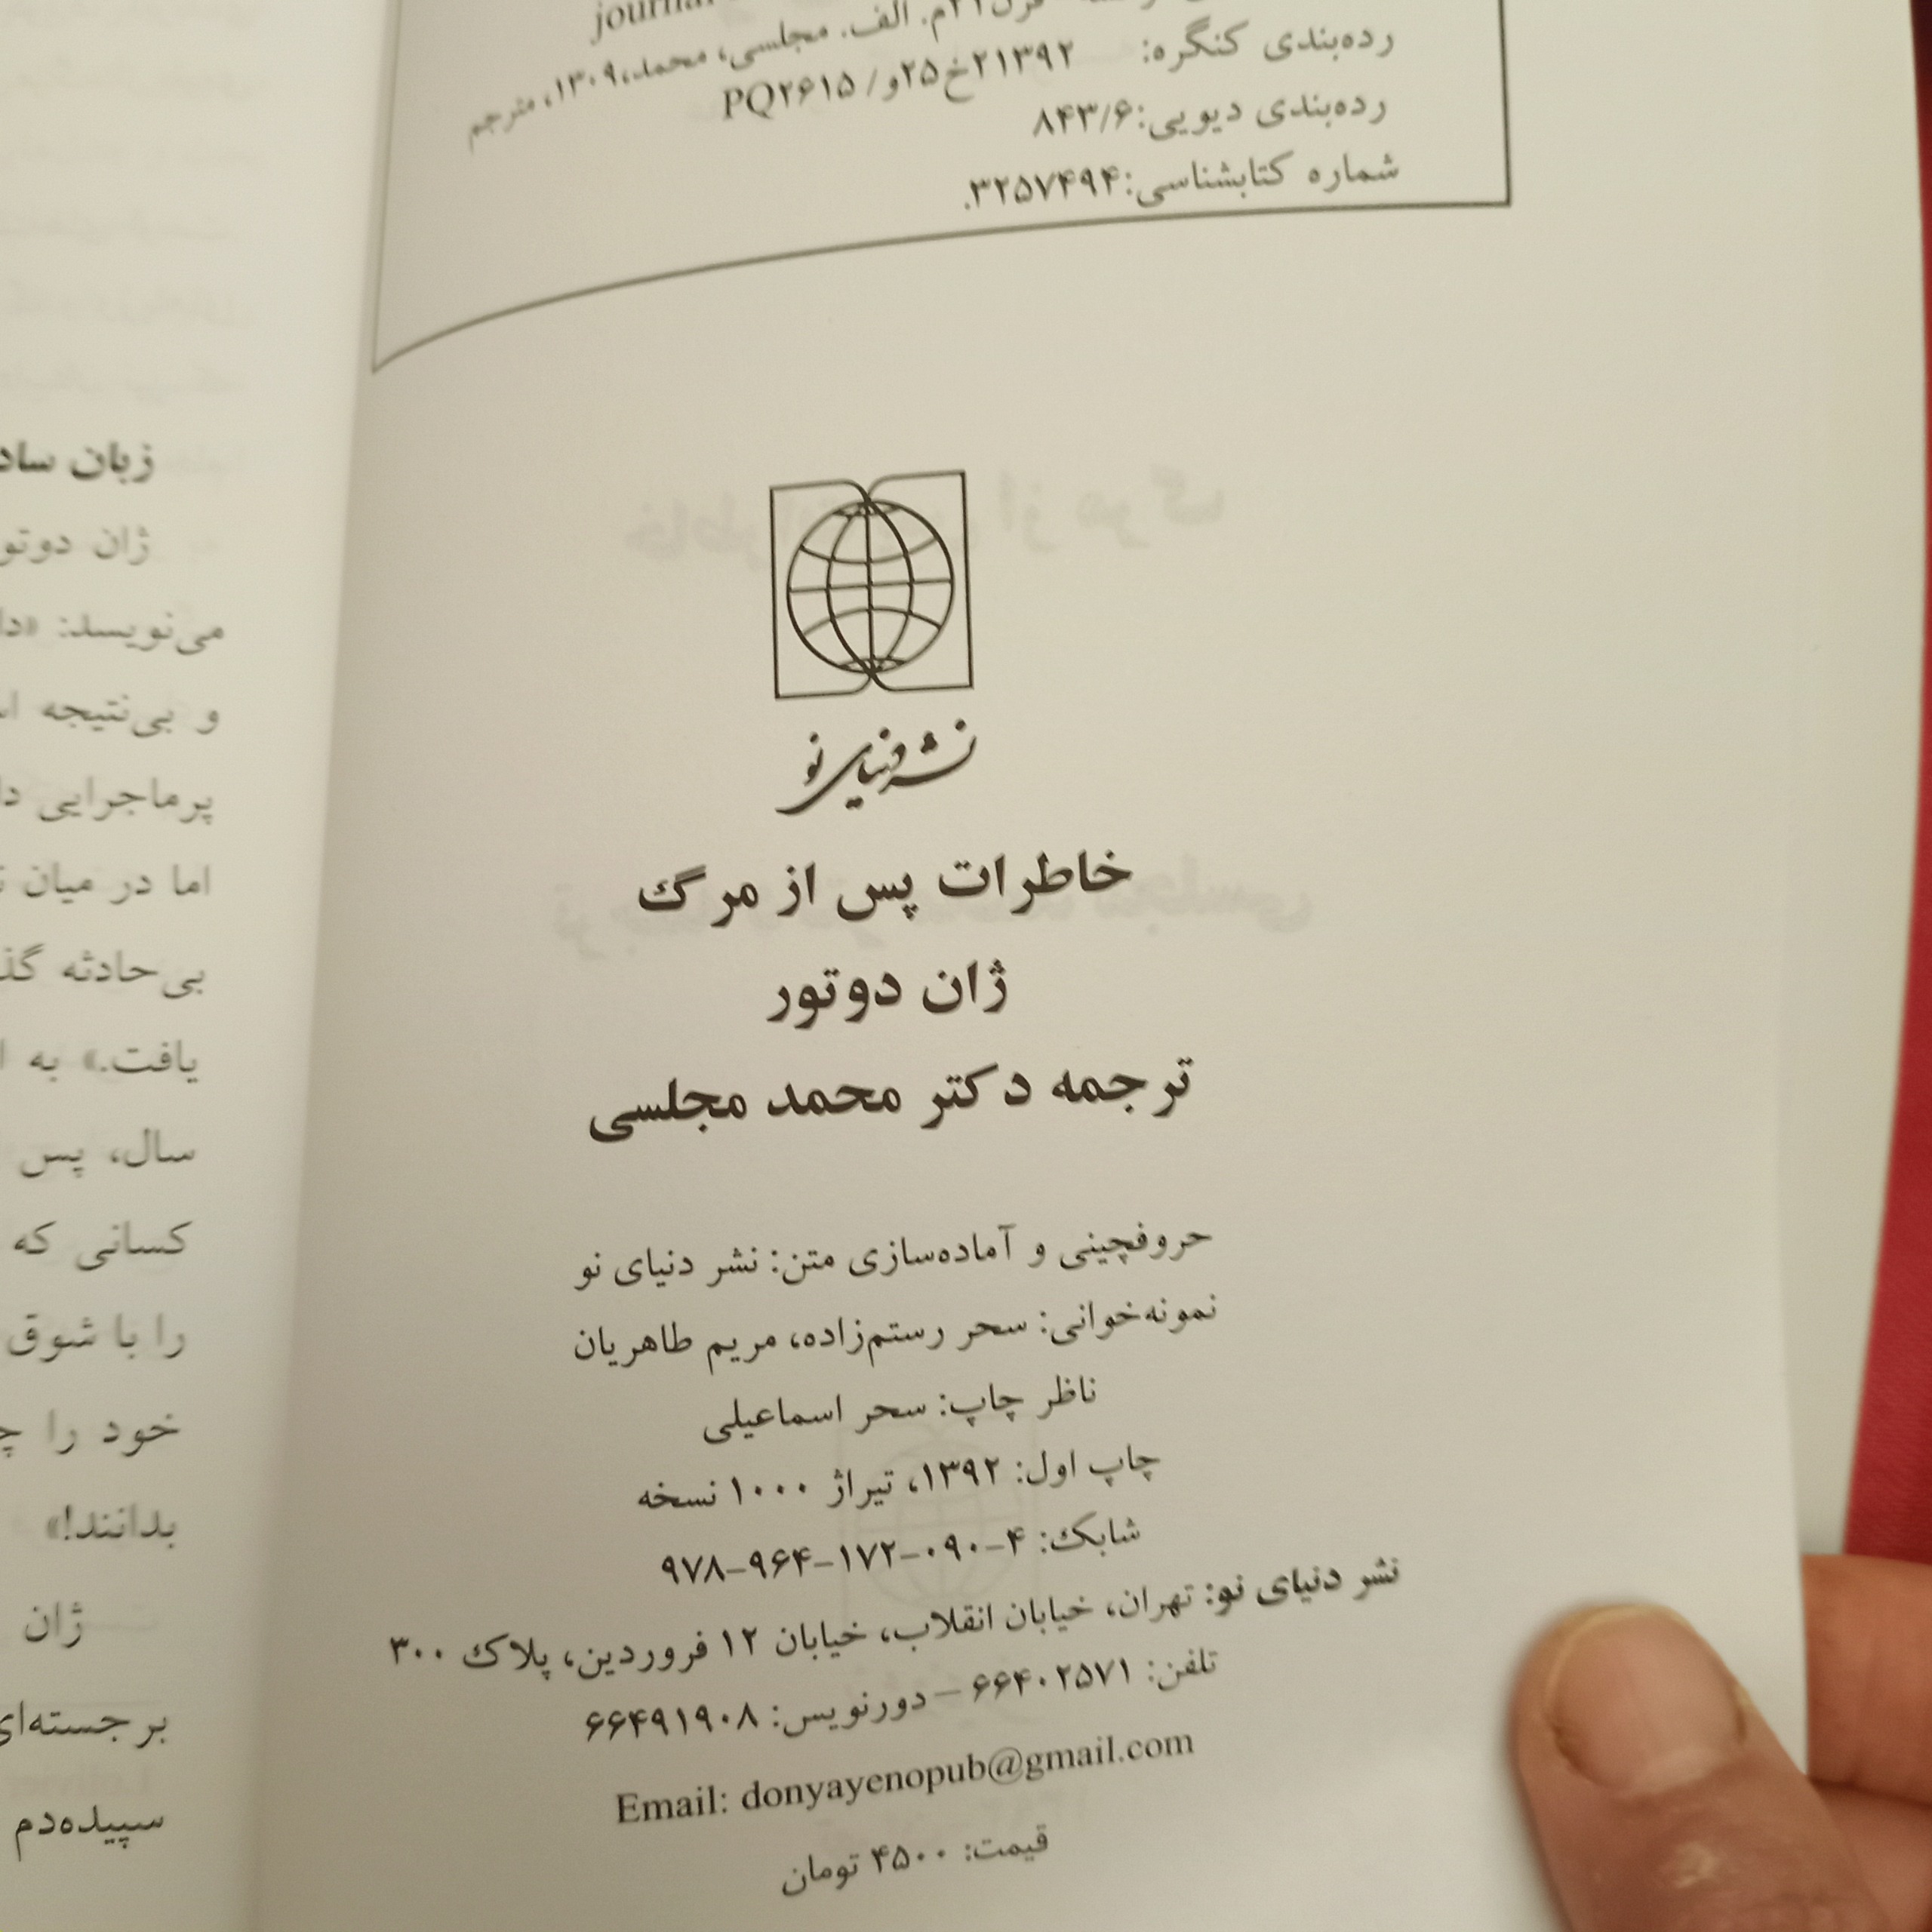 journal
قرن ۲۱م. الف. مجلسی، محمد، ۱۳۰۹، مترجم
رده‌بندی کنگره: ۲۱۳۹۲خ۲۵و/ PQ۲۶۱۵
رده‌بندی دیویی: ۸۴۳/۶
شماره کتابشناسی: ۳۲۵۷۴۹۴.
نشر دنیای نو
خاطرات پس از مرگ
ژان دوتور
ترجمه دکتر محمد مجلسی
حروفچینی و آماده‌سازی متن: نشر دنیای نو
نمونه‌خوانی: سحر رستم‌زاده، مریم طاهریان
ناظر چاپ: سحر اسماعیلی
چاپ اول: ۱۳۹۲، تیراژ ۱۰۰۰ نسخه
شابک: ۴-۰۹۰-۱۷۲-۹۶۴-۹۷۸
نشر دنیای نو: تهران، خیابان انقلاب، خیابان ۱۲ فروردین، پلاک ۳۰۰
تلفن: ۶۶۴۰۲۵۷۱ – دورنویس: ۶۶۴۹۱۹۰۸
Email: donyayenopub@gmail.com
قیمت: ۴۵۰۰ تومان
زبان
ژان دوتو
می‌نویسد:
و بی‌نتیجه
پرماجرایی
اما در میان
بی‌حادثه
یافت.» به
سال، پس
کسانی که
را با شوق
خود را
بدانند!»
ژان
برجسته‌ای
سپیده‌دم